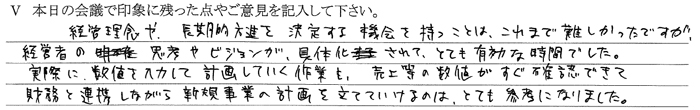 Ⅴ 本日の会議で印象に残った点やご意見を記入して下さい。
経営理念や、長期的方進を 決定する 機会を 持つことは、これまで難しかったですが、
経営者の 思考やビジョンが、具体化されて、とても有効な時間でした。
実際に、数値を入力して 計画していく作業も、売上等の数値がすぐ確認できて
財務と連携しながら 新規事業の計画を立てていけるのは、とても参考になりました。